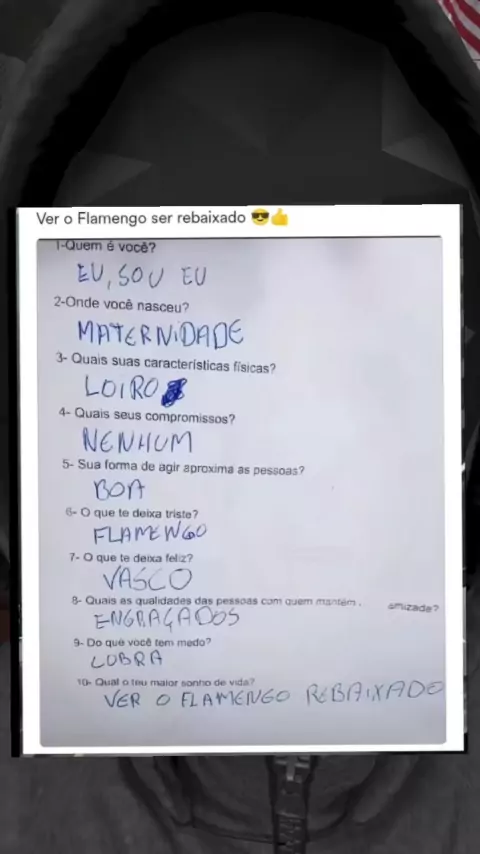 Ver o Flamengo ser rebaixado 😎👍
1-Quem é você?
EU, SOU EU
2-Onde você nasceu?
MATERNIDADE
3- Quais suas características físicas?
LOIRO
4- Quais seus compromissos?
NENHUM
5- Sua forma de agir aproxima as pessoas?
BOA
6- O que te deixa triste?
FLAMENGO
7- O que te deixa feliz?
VASCO
8- Quais as qualidades das pessoas com quem mantém . amizade?
ENGRAÇADOS
9- Do que você tem medo?
COBRA
10- Qual o teu maior sonho de vida?
VER O FLAMENGO REBAIXADO